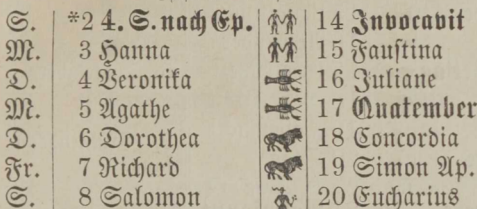 S. *2 4. S. nach Ep. 14 Invocavit
M. 3 Hanna 15 Faustina
D. 4 Veronika 16 Juliane
M. 5 Agathe 17 Quatember
D. 6 Dorothea 18 Concordia
Fr. 7 Richard 19 Simon Ap.
S. 8 Salomon 20 Eucharius